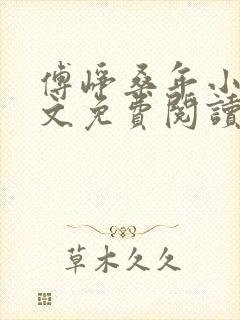 傅崢桑年小
文免費閱讀
草木久久